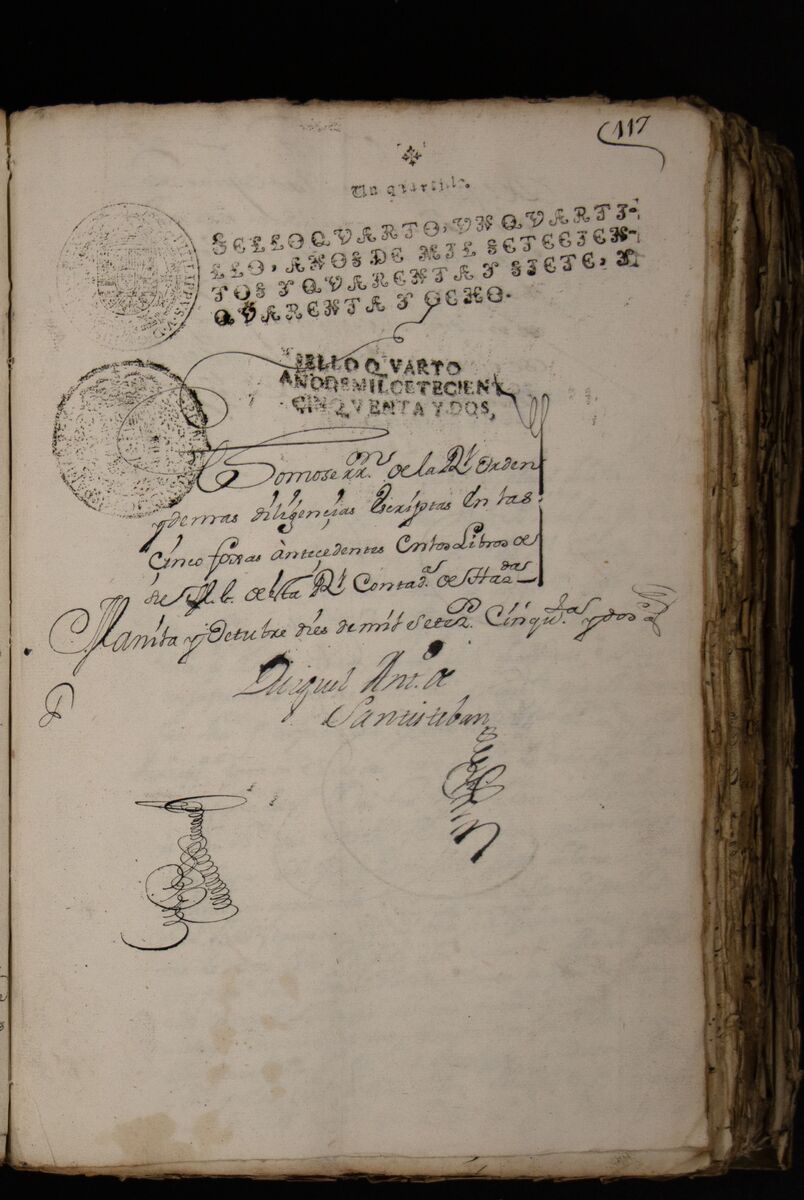 117
Un quartillo.
SELLO QVARTO, VN QVARTI-
LLO, AÑOS DE MIL SETECIEN-
TOS Y QVARENTA Y SIETE, Y
QVARENTA Y OCHO.
PHILIPPVS V D
SELLO QVARTO
AÑO DE MIL CETECIENT
CINQVENTA Y DOS,
Tomose rron. de la Rl. Orden
y demas diligençias escriptas en las
Cinco foxas antecedentes en los Libros de
su Mg. de esta Rl. Contada. de Hazdas.
Manila y Octubre dies de mil Setezs. Cinqu.tas y dos as.
Miguel Ant.o de
Santisteban